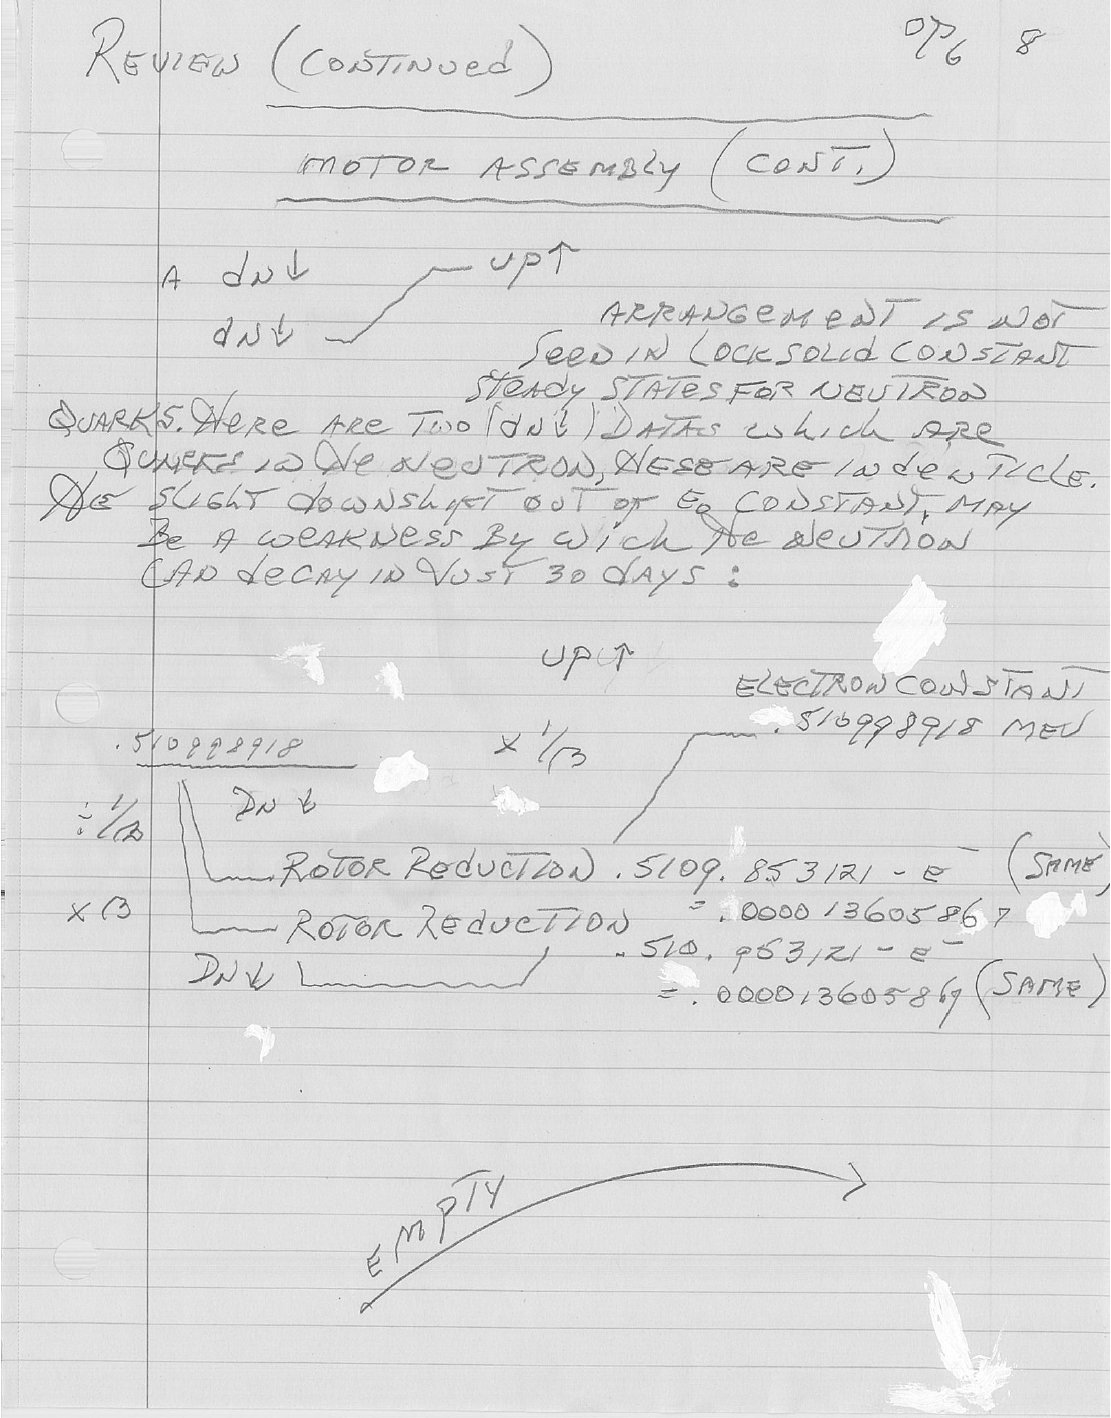 REVIEW (CONTINUED) OP6 8
MOTOR ASSEMBLY (CONT.)
A dN↓ UP↑
dN↓
ARRANGEMENT IS NOT
SEEN IN LOCK SOLID CONSTANT
STEADY STATES FOR NEUTRON
QUARKS. HERE ARE TWO (dN↓) DATAS WHICH ARE
IN THE NEUTRON, THESE ARE INDENTICLE.
THE SLIGHT DOWNSHIFT OUT OF E0 CONSTANT, MAY
BE A WEAKNESS BY WICH THE NEUTRON
CAN DECAY IN JUST 30 DAYS:
UP↑
ELECTRON CONSTANT
.510998918 MEV
.510998918 X 1/B
DN↓
÷ 1/B
ROTOR REDUCTION .5109.853121 - e⁻ (SAME)
X B = .00001360586
ROTOR REDUCTION
.510.953121 - e⁻
DN↓
= .0000136058 (SAME)
EMPTY